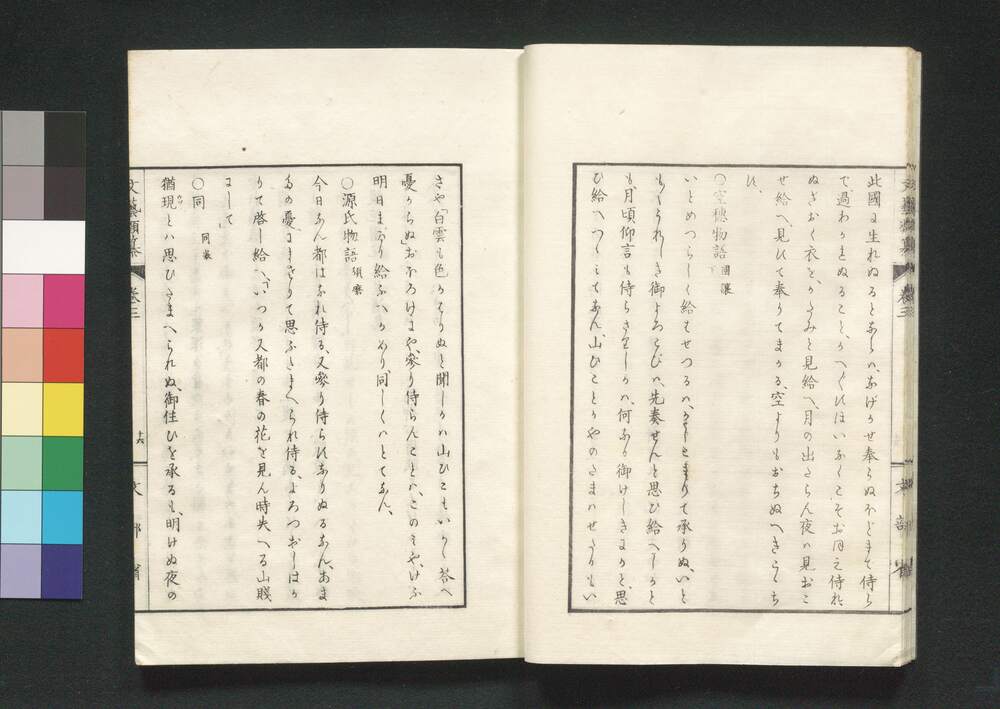 此國に生れぬるとならハ、なげかせ奉らぬほどまて侍ら
で過わかれぬること、かへすがへすほいなくこそおほえ侍れ
ぬぎおく衣を、かたみと見給へ、月の出たらん夜ハ見おこ
せ給へ、見捨て奉りてまかる、空よりもおちぬへきここち
○空穂物語 國讓
いとめつらしく給ハせつるハ、かしこまりて承りぬ、いと
もうれしき御よろこびハ、先奏せんと思ひ給へしかと
も、月頃仰言も侍らさりしかハ、何なる御けしきにかと、思
ひ給へつつみてなん、山びことかやのたまハせたりもい
さや「白雲も色かはりぬと聞しかハ山ひこもいかか答へ
憂からぬ」おほろけにや、參り侍らんことハ、このみや、けふ
明日まかり給ふへかめり、同しくハとてなん、
○源氏物語 須磨
今日なん都はなれ侍る、又參り侍らずなりぬるなん、あま
たの憂にまさりて思ふたまへられ侍る、よろつおしはか
りて啓し給へ、「いつか又都の春の花を見ん時失へる山賤
にして」
○同 同卷
猶現とハ思ひたまへられぬ、御住ひを承るも、明けぬ夜の
文藝類纂 卷三
十六
文部省